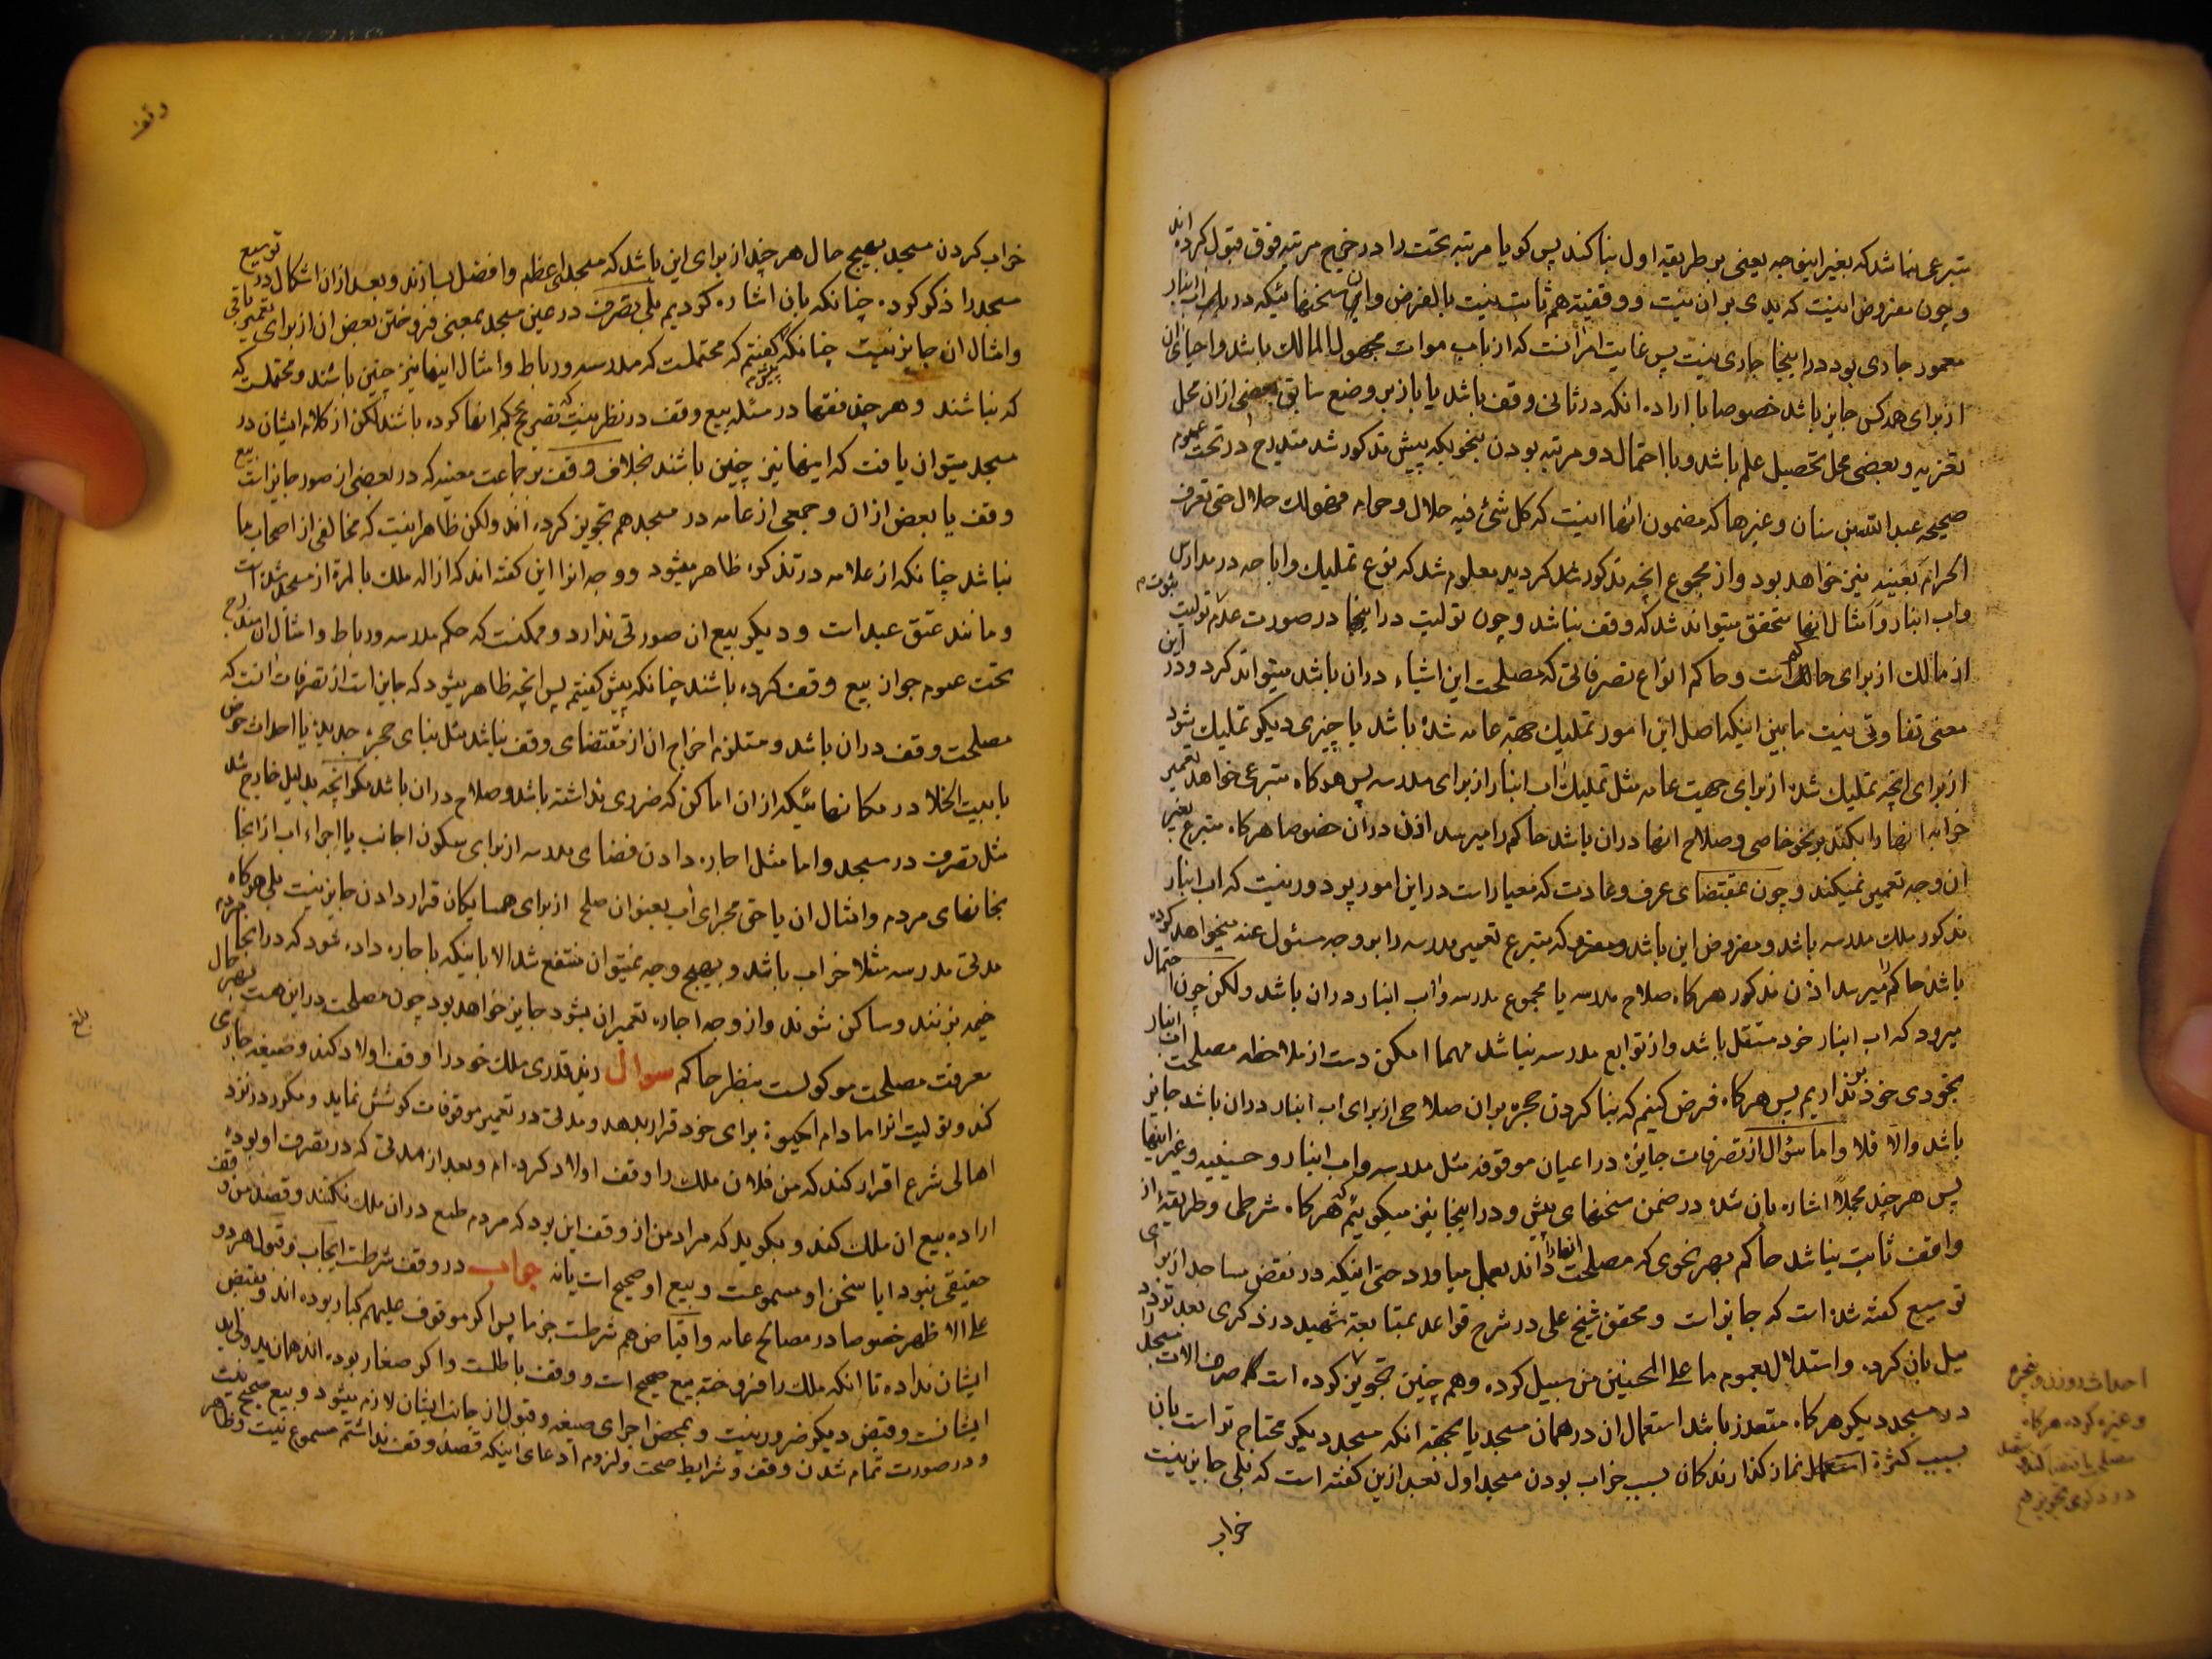 متبرعی نباشد که بغیر اینوجه یعنی بر طریقه اول بنا کند پس کویا مرتبه تحت را در خرج مرتبه فوق قبول کرده اند
و چون مفروض اینست که یدی بر ان نیست و وقفیته هم ثابت نیست بالفرض و این سخنهائیکه در باب اب انبار
معمور جاری بود در اینجا جاری نیست پس غایت امر انست که از باب موات مجهول المالک باشد و احیای ان
از برای همه کس جایز باشد خصوصا با اراده انکه در ثانی وقف باشد یا باز بر وضع سابق بعضی از ان محل
تعزیه و بعضی محل تحصیل علم باشد و با احتمال دو مرتبه بودن بنحویکه پیش مذکور شد مندرج در تحت عموم
صحیحه عبدالله بن سنان و غیرها که مضمون انها اینست که کل شئ فیه حلال و حرام فهو لک حلال حتی تعرف
الحرام بعینه نیز خواهد بود و از مجموع انچه مذکور شد کردید معلوم شد که نوع تملیک و اباحه در مدارس
و اب انبار و امثال انها متحقق میتواند شد که وقف نباشد و چون تولیت در اینجا در صورت عدم ثبوت تولیت
از مالک از برای حاکم است و حاکم انواع تصرفاتی که مصلحت این اشیاء در ان باشد میتواند کرد و در این
معنی تفاوتی نیست مابین اینکه اصل این امور تملیک جهة عامه شده باشد یا چیزی دیکر تملیک شود
از برای انچه تملیک شده از برای جهت عامه مثل تملیک اب انبار از برای مدرسه پس هرکاه متبرعی خواهد تعمیر
خرابه انها را بکند بر نحو خاصی و صلاح انها در ان باشد حاکم را میرسد اذن در ان خصوصا هرکاه متبرع بغیر
ان وجه تعمیر نمیکند و چون بمقتضای عرف و عادت که معیار است در این امور پر دور نیست که اب انبار
مذکور ملک مدرسه باشد و مفروض این باشد و متبرع تعمیر مدرسه را بر وجه مسئول عنه میخواهد کرده
باشد حاکم را میرسد اذن مذکور هرکاه صلاح مدرسه یا مجموع مدرسه و اب انبار در ان باشد ولکن چون احتمال
میرود که اب انبار خود مستقل باشد و از توابع مدرسه نباشد مهما امکن دست از ملاحظه مصلحت اب انبار
بخودی خود بر نداریم پس هرکاه فرض کنیم که بنا کردن حجره بر ان صلاحی از برای اب انبار در ان باشد جایز
باشد والا فلا و اما سؤال از تصرفات جایزه در اعیان موقوفه مثل مدرسه و اب انبار و حسینیه و غیر اینها
پس هر چند مجملا اشاره بان شد در ضمن سخنهای پیش و در اینجا نیز میکوئیم که هرکاه شرطی و طریقه از
واقف ثابت نباشد حاکم بهر نحوی که مصلحت انها را داند بعمل میاورد حتی اینکه در نقض مساجد از برای
توسیع کفته شده است که جایز است و محقق شیخ علی در شرح قواعد بمتابعة شهید در ذکری بعد تردد
میل بان کرده و استدلال بعموم ما علی المحسنین من سبیل کرده و هم چنین تجویز کرده است صرف الات مسجد را
در مسجد دیکر هرکاه متعذر باشد استعمال ان در همان مسجد یا بجهة انکه مسجد دیکر محتاج تر است بان
بسبب کثرة نماز کذارندکان بسبب خراب بودن مسجد اول بعد ازین کفته است که بلی جایز نیست
خراب
احداث روزن و پنجره
و غیره کرده هرکاه
در ذکری تجویز هم
وقف
خراب کردن مسجد بهیچ حال هر چند از برای این باشد که مسجدی اعظم و افضل بسازند و بعد از ان اشکال در توسیع
مسجد را ذکر کرده چنانکه بان اشاره کردیم بلی تصرف در عین مسجد بمعنی فروختن بعض ان از برای تعمیر باقی
و امثال ان جایز نیست چنانکه پیش کفتیم که محتملست که مدرسه و رباط و امثال اینها نیز چنین باشند و محتملست که
که نباشند و هر چند فقها در مسئله بیع وقف در نظر نیست که تصریح بحکم انها کرده باشند لکن از کلام ایشان در
مسجد میتوان یافت که اینها نیز چنین باشند بخلاف وقف بر جماعت معینه که در بعضی از صور جایز است بیع
وقف یا بعض از ان و جمعی از عامه در مسجد هم تجویز کرده اند ولکن ظاهر اینست که مخالفی از اصحاب ما
نباشد چنانکه از علامه در تذکره ظاهر میشود و وجه انرا این کفته اند که ازاله ملک بالمرة از مسجد شده است
و مانند عتق عبد است و دیکر بیع ان صورتی ندارد و ممکنست که حکم مدرسه و رباط و امثال ان مندرج
تحت عموم جواز بیع وقف کرده باشند چنانکه پیش کفتیم پس انچه ظاهر میشود که جایز است از تصرفات انست که
مصلحت وقف در ان باشد و مستلزم اخراج ان از مقتضای وقف نباشد مثل بنای حجرهٔ جدیده یا احداث حوض
یا بیت الخلا در مکانهائیکه از ان اماکن که ضرری نداشته باشد و صلاح در ان باشد مکر انچه بدلیل خارج شد
مثل تصرف در مسجد و اما مثل اجاره دادن فضای مدرسه از برای سکون اجانب یا اجراء اب از انجا
بخانهای مردم و امثال ان یا حتی مجرای اب بعنوان صلح از برای همسایکان قرار دادن جایز نیست بلی هرکاه
مدتی مدرسه مثلا خراب باشد و بهیچ وجه نمیتوان منتفع شد الا باینکه باجاره داده شود که در انجا مردم
خیمه بزنند و ساکن شوند و از وجه اجاره تعمیر ان بشود جایز خواهد بود چون مصلحت در این هست بهر حال
معرفت مصلحت موکولست بنظر حاکم سوال زید قدری ملک خود را وقف اولاد کند و صیغه جاری
کند و تولیت انرا مادام الحیوة برای خود قرار بدهد و مدتی در تعمیر موقوفات کوشش نماید و مکرر در نزد
اهالی شرع اقرار کند که من فلان ملک را وقف اولاد کرده ام و بعد از مدتی که در تصرف او بوده
اراده بیع ان ملک کند و بکوید که مراد من از وقف این بود که مردم طمع در ان ملک نکنند و قصد من وقف
حقیقی نبود ایا سخن او مسموعست و بیع او صحیح است یا نه جواب در وقف شرطست ایجاب و قبول هر دو
علی الاظهر خصوصا در مصالح عامه و اقباض هم شرطست جزما پس اکر موقوف علیهم کبار بوده اند و بقبض
ایشان نداده تا انکه ملک را فروخته بیع صحیح است و وقف باطلست و اکر صغار بوده اند همان ید ولی ید
ایشانست و قبض دیکر ضرور نیست و بمحض اجرای صیغه و قبول از جانب ایشان لازم میشود و بیع صحیح نیست
و در صورت تمام شدن وقف و شرایط صحت و لزوم ادعای اینکه قصد وقف نداشتم مسموع نیست و ظاهر
بلغ